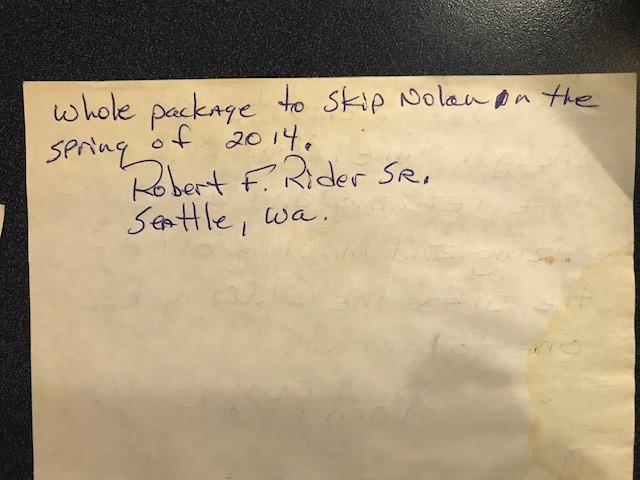 whole package to Skip Nolan on the
spring of 2014.
Robert F. Rider SR.
Seattle, wa.